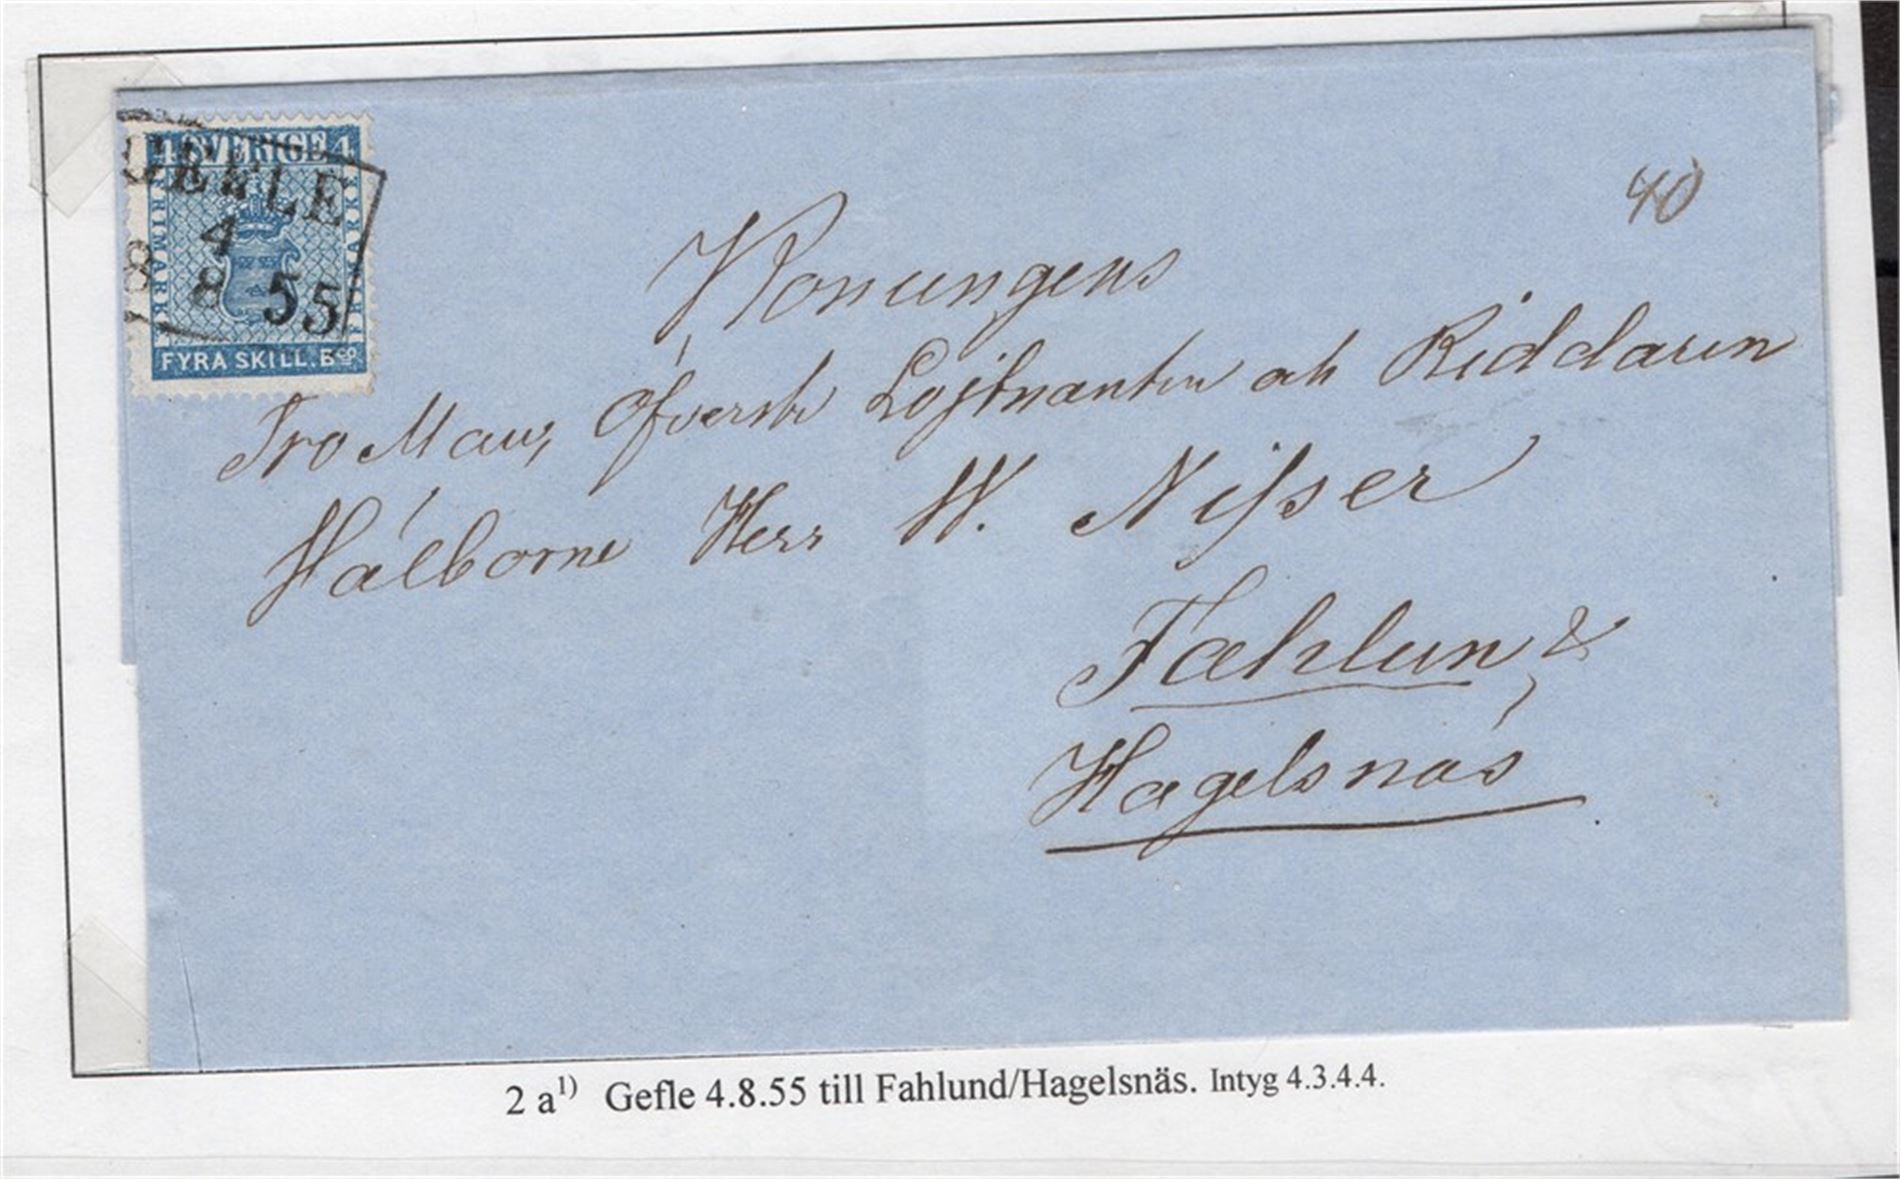 4 SVERIGE 4
FRIMÄRKE
FYRA SKILL. Bco
GEFLE
4
8 8 55
40
Konungens
Tro Man, Öfverste Löjtnanten och Riddaren
Wälborne Herr W. Nisser
Fahlun &
Hagelsnäs
2 a1) Gefle 4.8.55 till Fahlund/Hagelsnäs. Intyg 4.3.4.4.